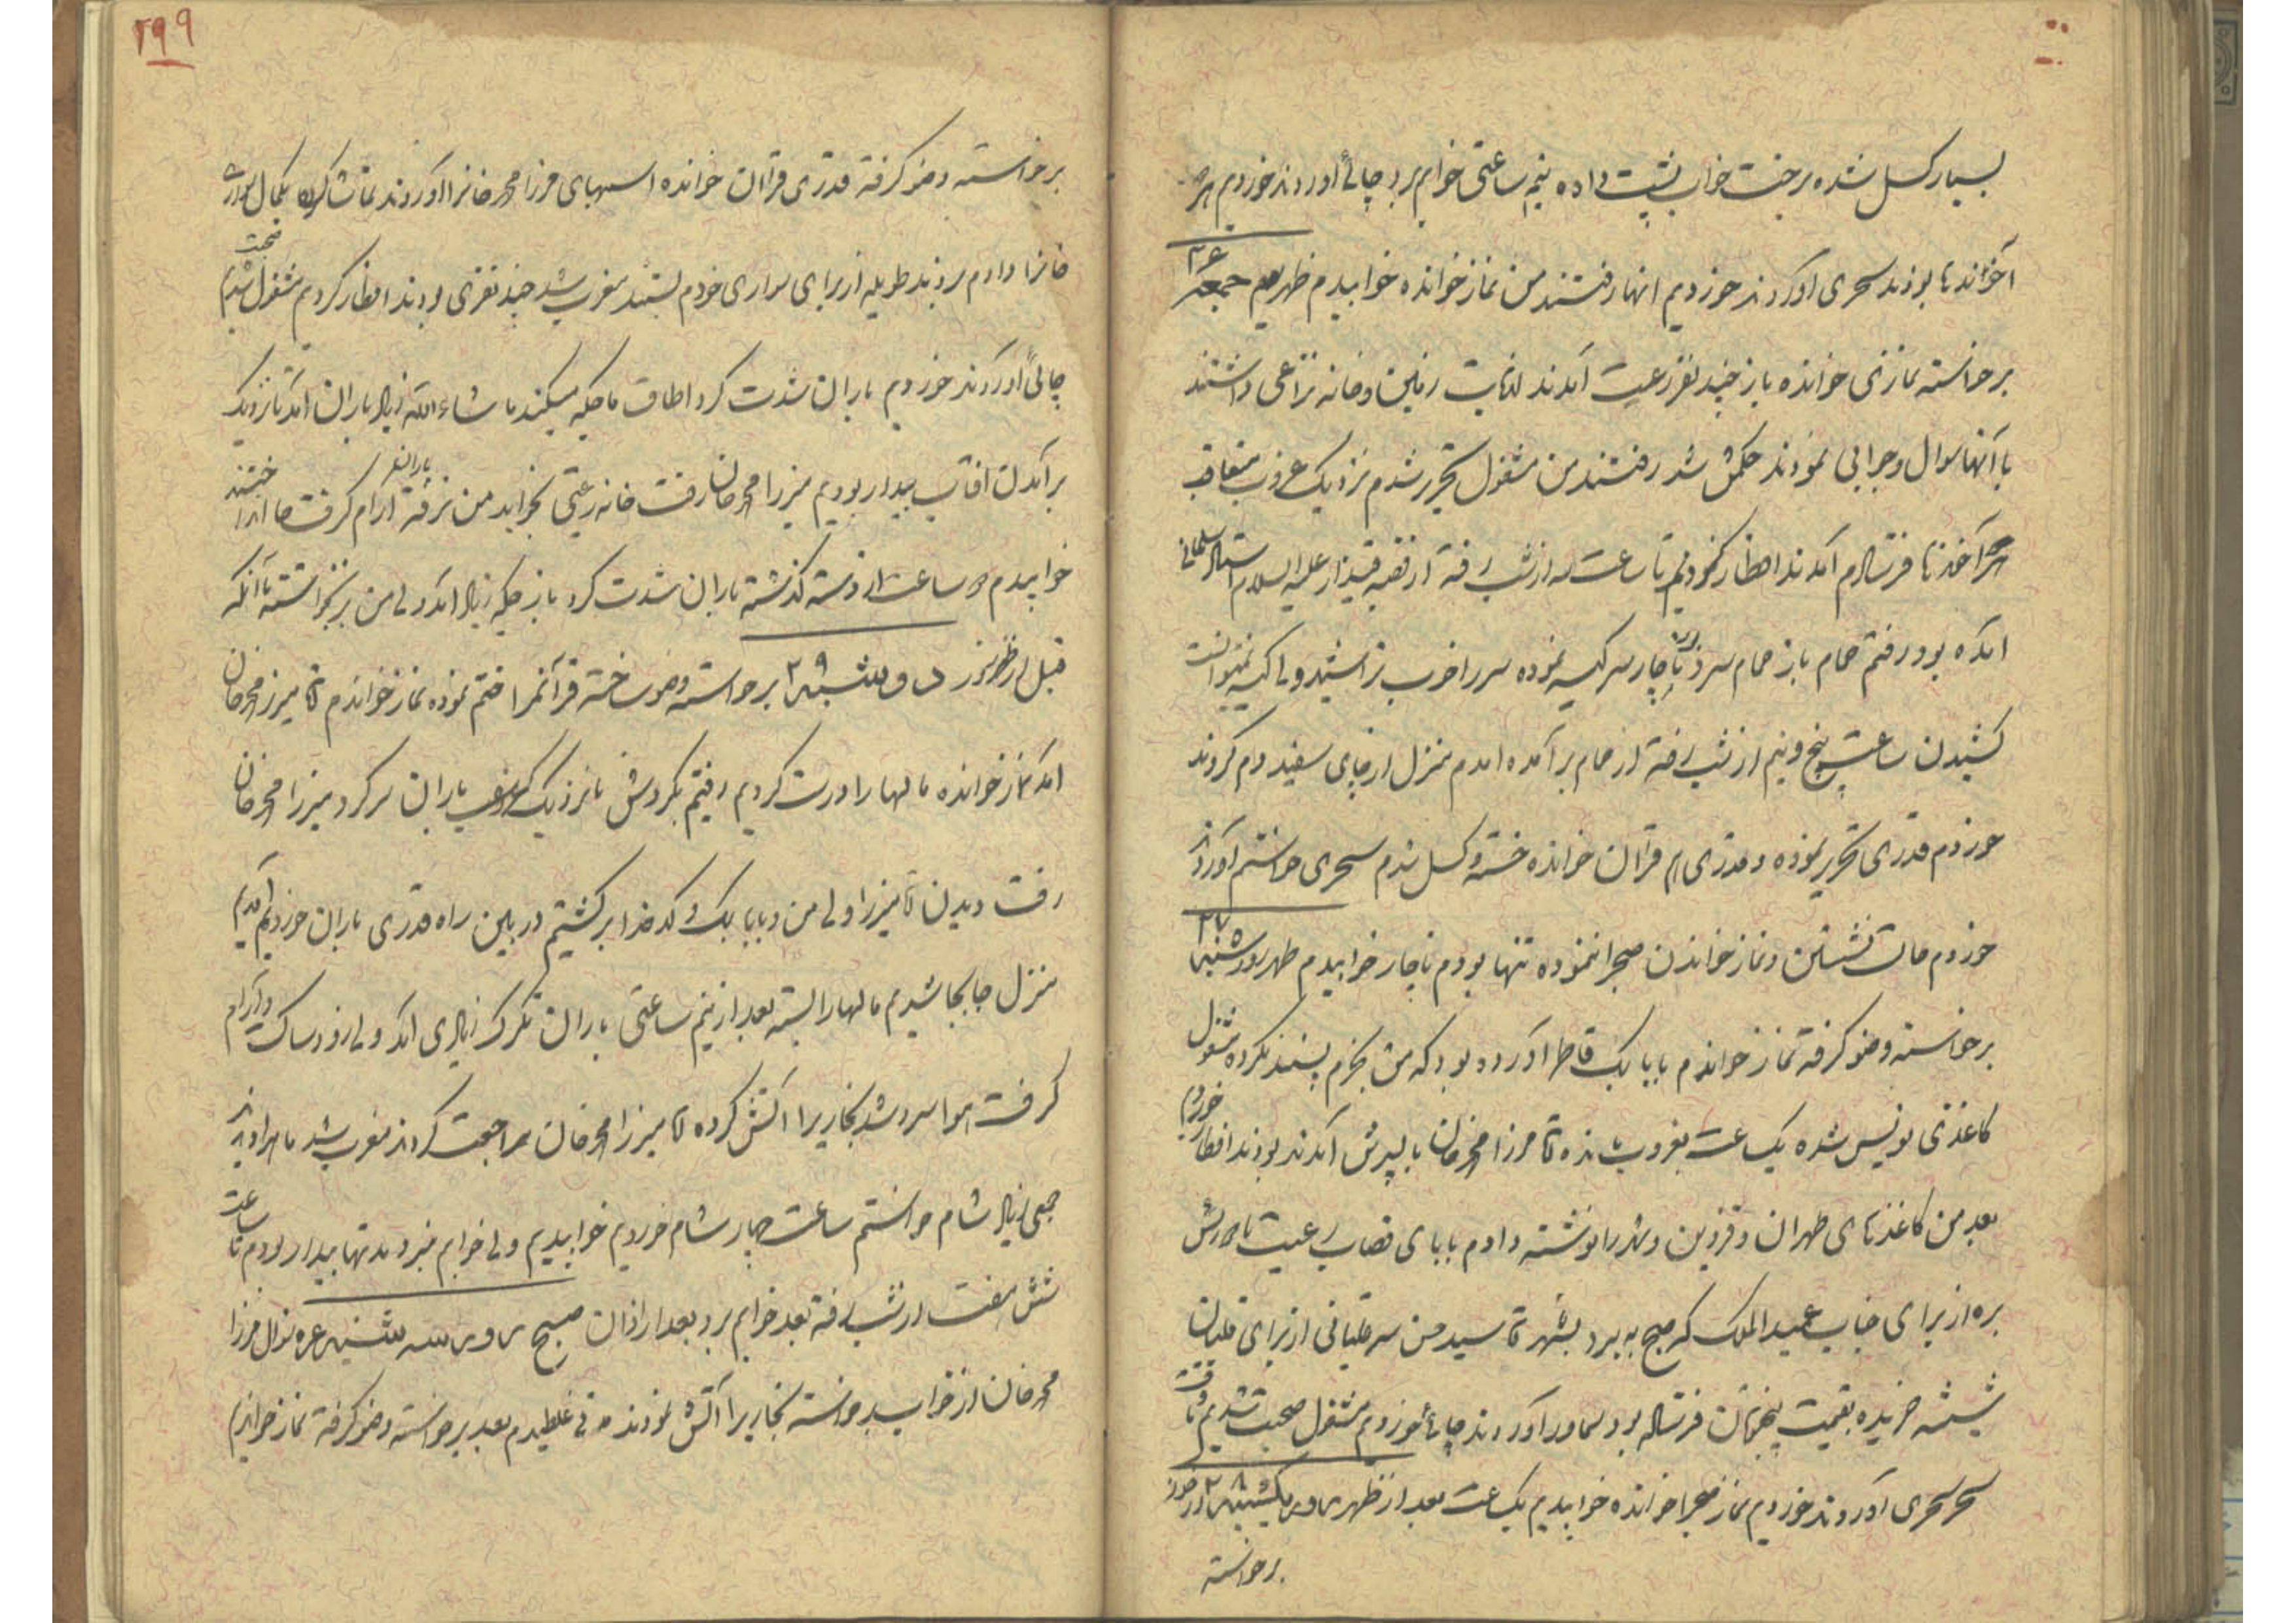 بسیار کسل شده برخت خواب پشت داده نیم ساعتی خوابم برد چائی آوردند خوردیم
آخوندها بودند سحری آوردند خوردیم انها رفتند من نماز خوانده خوابیدم ظهر یوم جمعه ۲۶
برخواسته نمازی خوانده باز چند نفر رعیت آمدند زمین و خانه نزاعی داشتند
با آنها سوال و جوابی نمودند حکمش شد رفتند من مشغول تحریر شدم نزدیک غروب
آخوندها فرستادم آمدند افطار نمودیم تا ساعت سه از شب رفته از قصه علیه السلام استاد سلمانی
امده بود رفتم حمام باز حمام سرد بود ناچار سر کیسه نموده سر را خوب تراشید ولی کیسه نمیتوانست
کشیدن ساعت پنج و نیم از شب رفته از حمام برآمده امدم منزل از چای سفید دم کردند
خوردم قدری تحریر نموده و قدری هم قران خوانده خسته و کسل شدم سحری خواستم آوردند
خوردم حالت نشستن و نماز خواندن صبح را ننموده تنها بودم ناچار خوابیدم ظهر روز شنبه ۲۷
برخواسته وضو گرفته نماز خواندم بابا بک قاطر آورده بود که من بخرم پسند نکرده مشغول
کاغذ نویسی شده یکساعت بغروب مانده آقا میرزا محمد خان با پسرش آمدند بودند افطار خوردیم
بعد من کاغذهای طهران و قزوین و شهر را نوشته دادم بابای قصاب رعیت
بره از برای جناب عمید الملک که صبح به برد بشهر آقا سید حسن سر قلیانی از برای قلیان
شیشه خریده بقیمت پنجتومان فرستاده بود سماور آوردند چائی خوردیم مشغول صحبت شدیم تا وقت
سحر سحری آوردند خوردیم نماز صبح را خوانده خوابیدیم یکساعت بعد از ظهر روز یکشنبه ۲۸ از خواب
برخواسته
۲۹۹
برخواسته وضو گرفته قدری قران خوانده اسبهای میرزا محمد خانرا آوردند تماشا کرده
خانرا دادم بردند طویله از برای سواری خودم بستند مغرب شد چند نفری بودند افطار کردیم مشغول صحبت شدیم
چائی آوردند خوردیم باران شدت کرد اطاق ما چکه میکند ماشاءالله زیاد باران آمد تا نزدیک
برآمدن افتاب بیدار بودیم میرزا محمد خان رفت خانه رعیتی بخوابد من نرفته باران هم آرام گرفت
خوابیدم ساعت از دسته گذشته باران شدت کرد باز چکه زیاد آمد ولی من برنخواسته تا آنکه
قبل از ظهر روز دوشنبه ۲۹ برخواسته وضو ساخته قرآنم را ختم نموده نماز خواندم آقا میرزا محمد خان
امد نماز خوانده مالها را درست کردیم رفتیم بگردش تا نزدیک غروب باران سر کرد میرزا محمد خان
رفت دیدن آقا میرزا ولی من و بابا بک و کدخدا برگشتیم در بین راه قدری باران خوردیم آمدیم
منزل جابجا شدیم مالها را بسته بعد از نیم ساعتی باران تگرگ زیادی آمد ولی زود ساکت و آرام
گرفت هوا سرد شد بخاری را آتش کرده آقا میرزا محمد خان مراجعت کردند مغرب شد
جمعی زیاد شام خواستم ساعت چهار شام خوردیم خوابیدیم ولی خوابم نبرد تنها بیدار بودم تا ساعت
شش هفت از شب رفته بعد خوابم برد بعد از اذان صبح روز سه شنبه غره شوال میرزا
محمد خان از خواب برخواسته بخاری را آتش نمودند قدری غلطیدم بعد برخواسته وضو گرفته نماز خواندیم